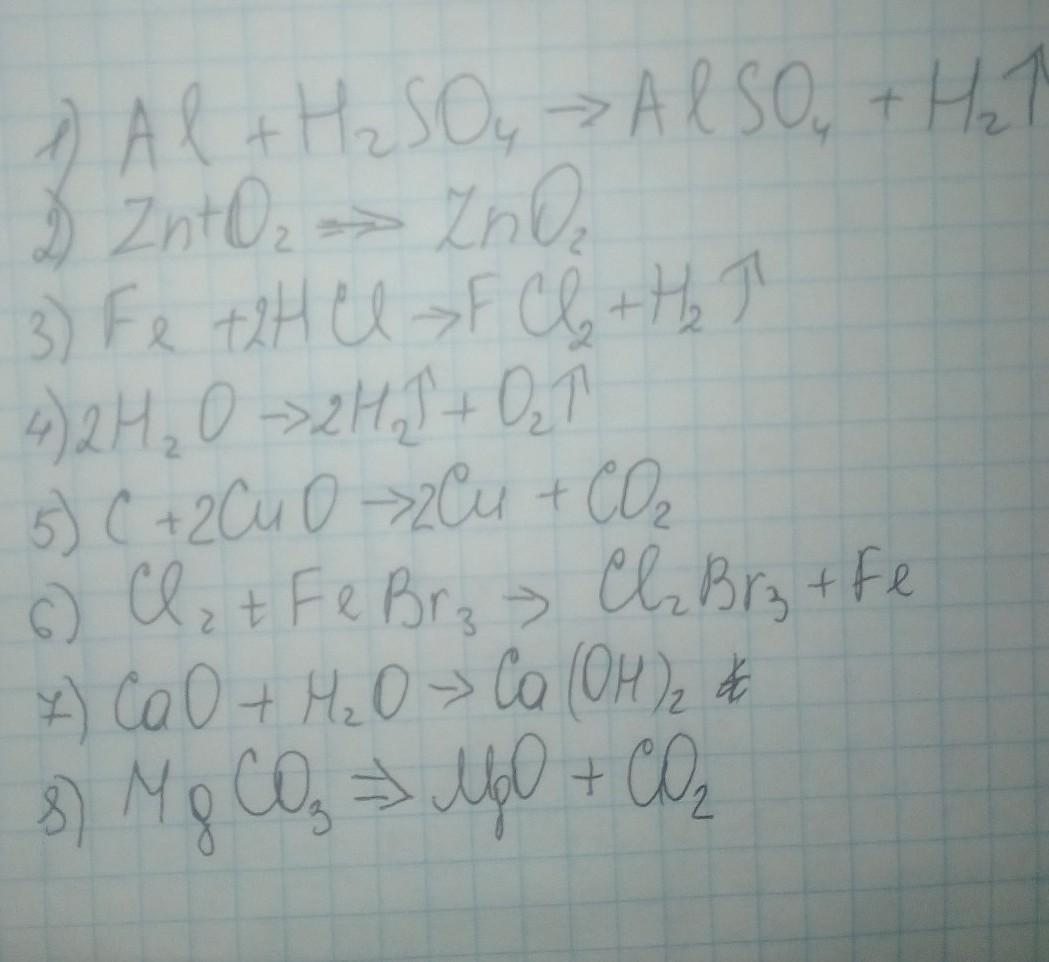 1) Al + H₂SO₄ → AlSO₄ + H₂↑
2) Zn+O₂ ⇒ ZnO₂
3) Fe +2HCl → FCl₂ + H₂↑
4) 2H₂O → 2H₂↑ + O₂↑
5) C + 2CuO → 2Cu + CO₂
6) Cl₂ + FeBr₃ → Cl₂Br₃ + Fe
7) CaO + H₂O → Ca(OH)₂
8) MgCO₃ ⇒ MgO + CO₂